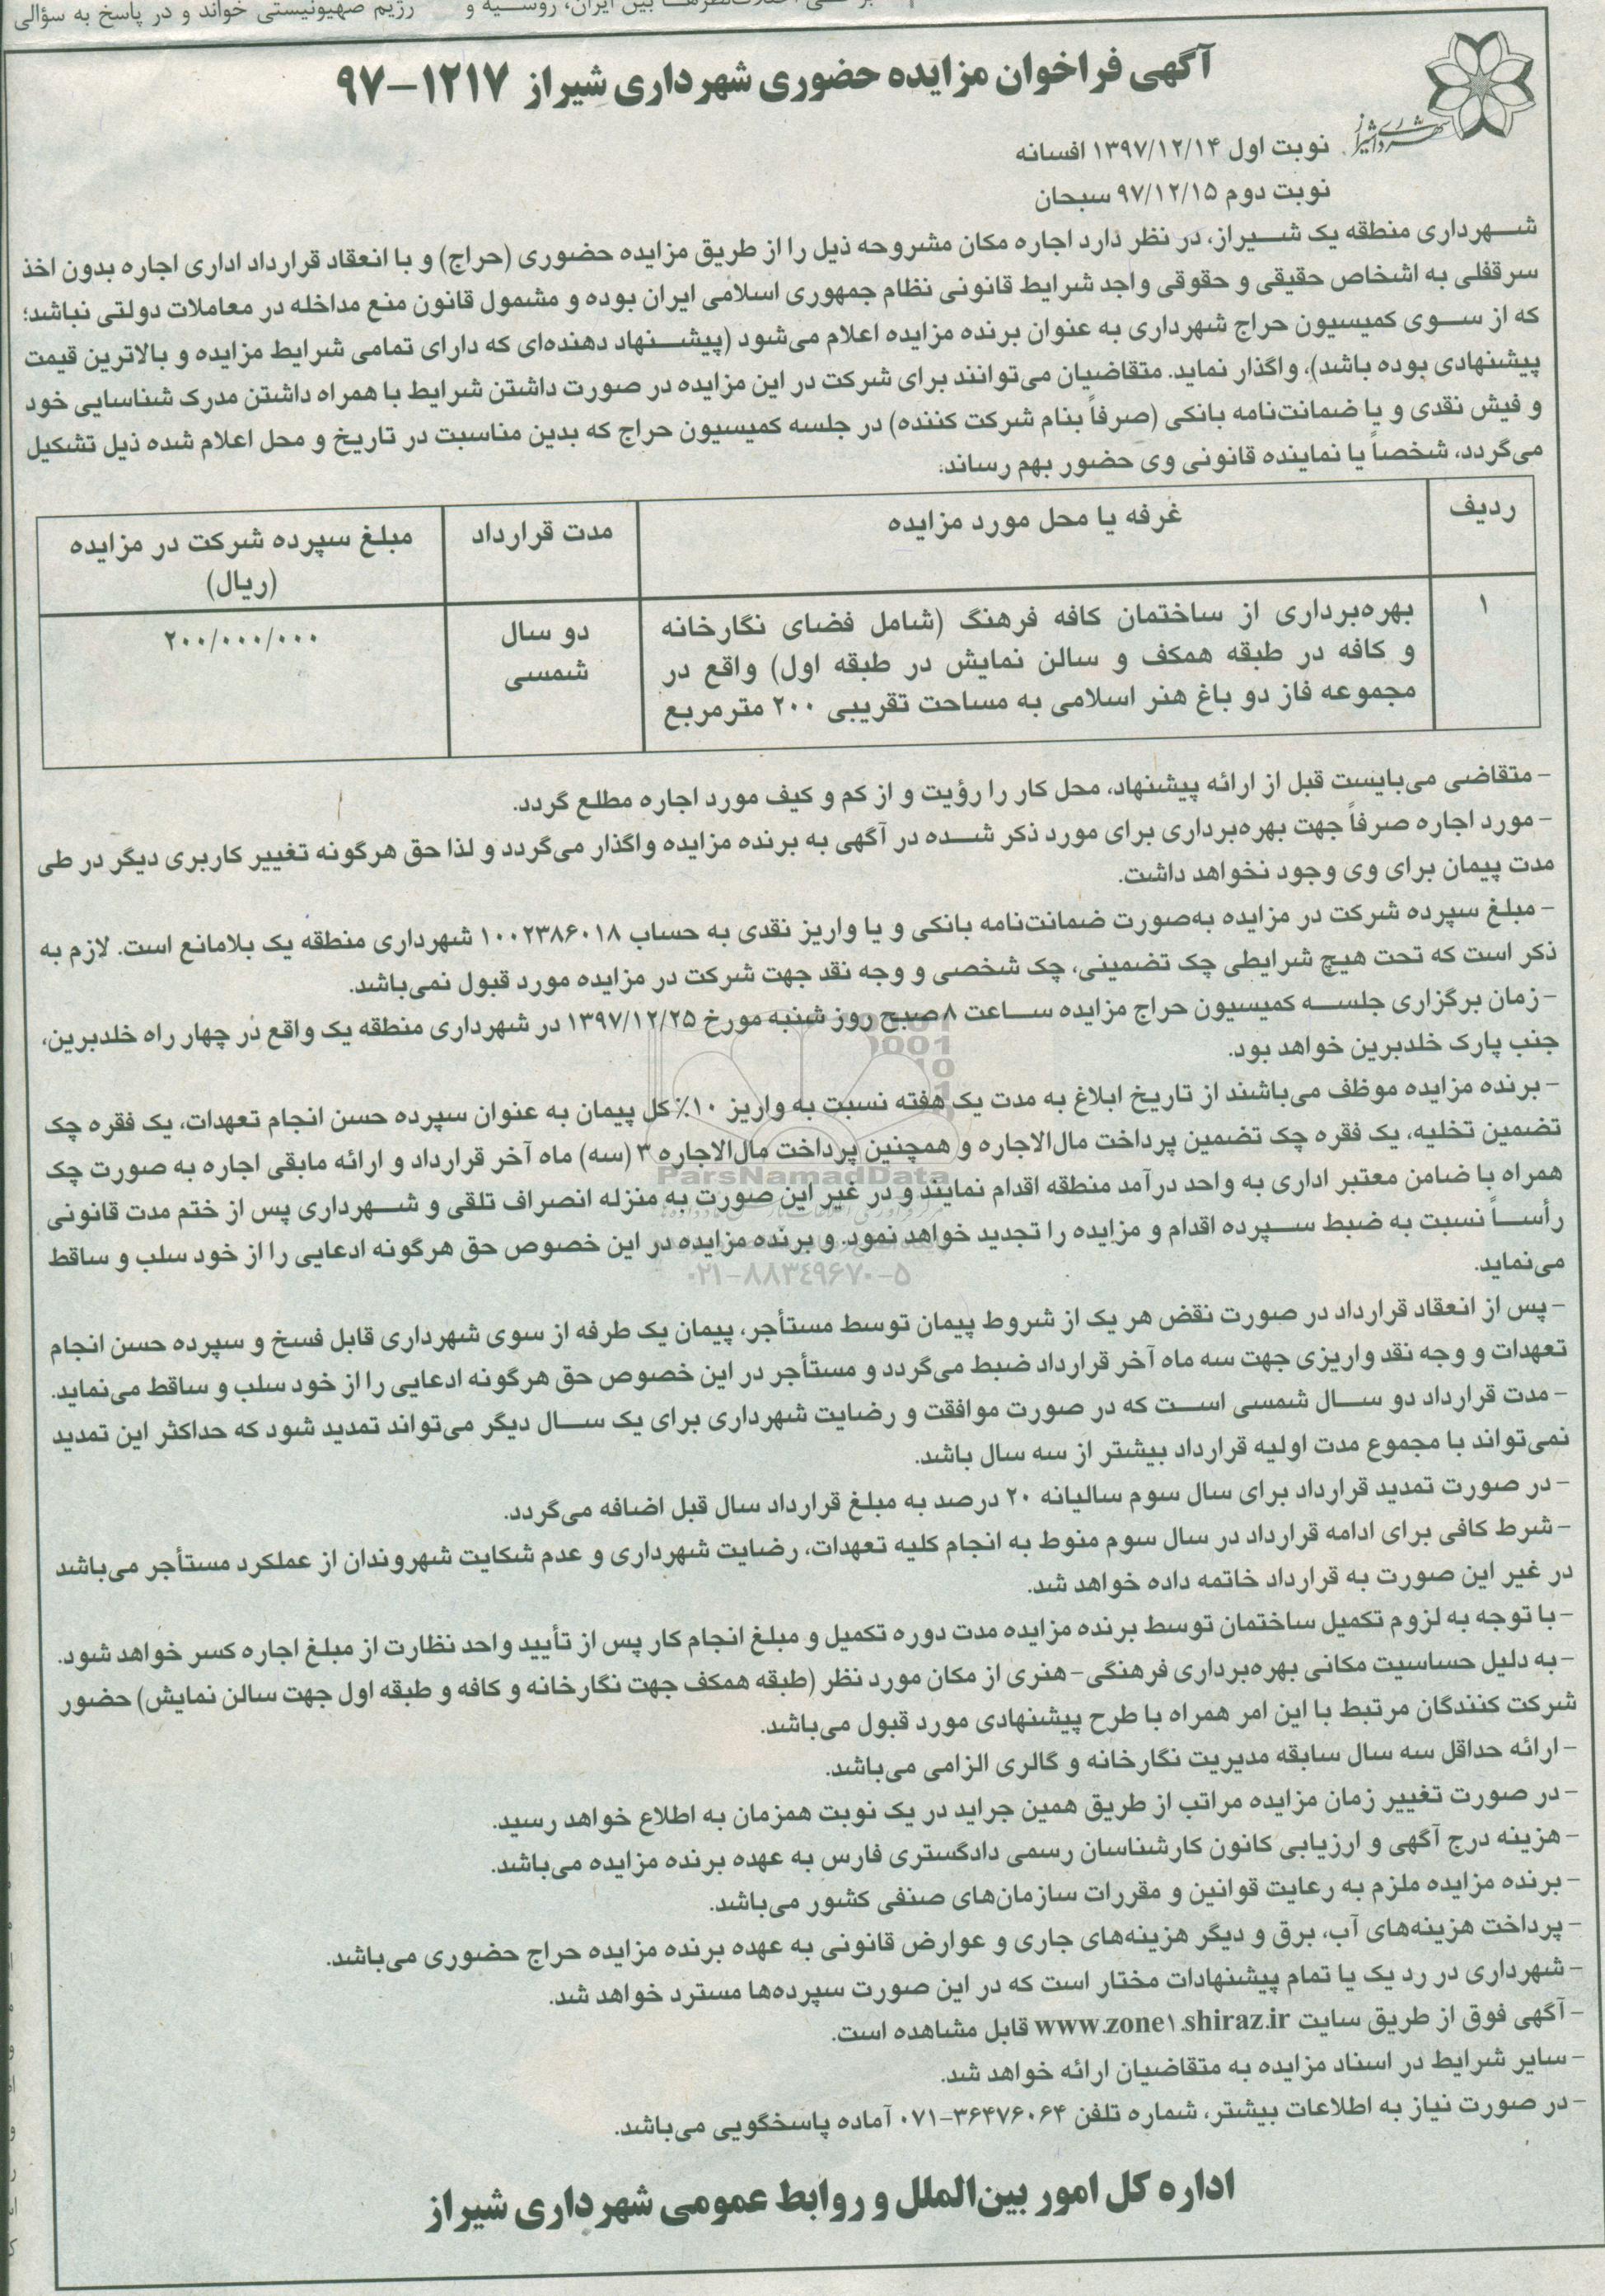 رژیم صهیونیستی خواند و در پاسخ به سؤالی
آگهی فراخوان مزایده حضوری شهرداری شیراز ۱۲۱۷-۹۷
شهرداری شیراز
نوبت اول ۱۳۹۷/۱۲/۱۴ افسانه
نوبت دوم ۹۷/۱۲/۱۵ سبحان
شهرداری منطقه یک شیراز، در نظر دارد اجاره مکان مشروحه ذیل را از طریق مزایده حضوری (حراج) و با انعقاد قرارداد اداری اجاره بدون اخذ
سرقفلی به اشخاص حقیقی و حقوقی واجد شرایط قانونی نظام جمهوری اسلامی ایران بوده و مشمول قانون منع مداخله در معاملات دولتی نباشد؛
که از سوی کمیسیون حراج شهرداری به عنوان برنده مزایده اعلام می‌شود (پیشنهاد دهنده‌ای که دارای تمامی شرایط مزایده و بالاترین قیمت
پیشنهادی بوده باشد)، واگذار نماید. متقاضیان می‌توانند برای شرکت در این مزایده در صورت داشتن شرایط با همراه داشتن مدرک شناسایی خود
و فیش نقدی و یا ضمانت‌نامه بانکی (صرفاً بنام شرکت کننده) در جلسه کمیسیون حراج که بدین مناسبت در تاریخ و محل اعلام شده ذیل تشکیل
می‌گردد، شخصاً یا نماینده قانونی وی حضور بهم رساند.
ردیف غرفه یا محل مورد مزایده مدت قرارداد مبلغ سپرده شرکت در مزایده
(ریال)
۱ بهره‌برداری از ساختمان کافه فرهنگ (شامل فضای نگارخانه دو سال ۲۰۰/۰۰۰/۰۰۰
و کافه در طبقه همکف و سالن نمایش در طبقه اول) واقع در شمسی
مجموعه فاز دو باغ هنر اسلامی به مساحت تقریبی ۲۰۰ مترمربع
- متقاضی می‌بایست قبل از ارائه پیشنهاد، محل کار را رؤیت و از کم و کیف مورد اجاره مطلع گردد.
- مورد اجاره صرفاً جهت بهره‌برداری برای مورد ذکر شده در آگهی به برنده مزایده واگذار می‌گردد و لذا حق هرگونه تغییر کاربری دیگر در طی
مدت پیمان برای وی وجود نخواهد داشت.
- مبلغ سپرده شرکت در مزایده به‌صورت ضمانت‌نامه بانکی و یا واریز نقدی به حساب ۱۰۰۲۳۸۶۰۱۸ شهرداری منطقه یک بلامانع است. لازم به
ذکر است که تحت هیچ شرایطی چک تضمینی، چک شخصی و وجه نقد جهت شرکت در مزایده مورد قبول نمی‌باشد.
- زمان برگزاری جلسه کمیسیون حراج مزایده ساعت ۸ صبح روز شنبه مورخ ۱۳۹۷/۱۲/۲۵ در شهرداری منطقه یک واقع در چهار راه خلدبرین،
جنب پارک خلدبرین خواهد بود.
- برنده مزایده موظف می‌باشند از تاریخ ابلاغ به مدت یک هفته نسبت به واریز ۱۰٪ کل پیمان به عنوان سپرده حسن انجام تعهدات، یک فقره چک
تضمین تخلیه، یک فقره چک تضمین پرداخت مال‌الاجاره و همچنین پرداخت مال‌الاجاره ۳ (سه) ماه آخر قرارداد و ارائه مابقی اجاره به صورت چک
همراه با ضامن معتبر اداری به واحد درآمد منطقه اقدام نمایند و در غیر این صورت به منزله انصراف تلقی و شهرداری پس از ختم مدت قانونی
رأساً نسبت به ضبط سپرده اقدام و مزایده را تجدید خواهد نمود. و برنده مزایده در این خصوص حق هرگونه ادعایی را از خود سلب و ساقط
می‌نماید.
ParsNamadData
۰۲۱-۸۸۳۴۹۶۷۰-۵
- پس از انعقاد قرارداد در صورت نقض هر یک از شروط پیمان توسط مستأجر، پیمان یک طرفه از سوی شهرداری قابل فسخ و سپرده حسن انجام
تعهدات و وجه نقد واریزی جهت سه ماه آخر قرارداد ضبط می‌گردد و مستأجر در این خصوص حق هرگونه ادعایی را از خود سلب و ساقط می‌نماید.
- مدت قرارداد دو سال شمسی است که در صورت موافقت و رضایت شهرداری برای یک سال دیگر می‌تواند تمدید شود که حداکثر این تمدید
نمی‌تواند با مجموع مدت اولیه قرارداد بیشتر از سه سال باشد.
- در صورت تمدید قرارداد برای سال سوم سالیانه ۲۰ درصد به مبلغ قرارداد سال قبل اضافه می‌گردد.
- شرط کافی برای ادامه قرارداد در سال سوم منوط به انجام کلیه تعهدات، رضایت شهرداری و عدم شکایت شهروندان از عملکرد مستأجر می‌باشد
در غیر این صورت به قرارداد خاتمه داده خواهد شد.
- با توجه به لزوم تکمیل ساختمان توسط برنده مزایده مدت دوره تکمیل و مبلغ انجام کار پس از تأیید واحد نظارت از مبلغ اجاره کسر خواهد شود.
- به دلیل حساسیت مکانی بهره‌برداری فرهنگی- هنری از مکان مورد نظر (طبقه همکف جهت نگارخانه و کافه و طبقه اول جهت سالن نمایش) حضور
شرکت کنندگان مرتبط با این امر همراه با طرح پیشنهادی مورد قبول می‌باشد.
- ارائه حداقل سه سال سابقه مدیریت نگارخانه و گالری الزامی می‌باشد.
- در صورت تغییر زمان مزایده مراتب از طریق همین جراید در یک نوبت همزمان به اطلاع خواهد رسید.
- هزینه درج آگهی و ارزیابی کانون کارشناسان رسمی دادگستری فارس به عهده برنده مزایده می‌باشد.
- برنده مزایده ملزم به رعایت قوانین و مقررات سازمان‌های صنفی کشور می‌باشد.
- پرداخت هزینه‌های آب، برق و دیگر هزینه‌های جاری و عوارض قانونی به عهده برنده مزایده حراج حضوری می‌باشد.
- شهرداری در رد یک یا تمام پیشنهادات مختار است که در این صورت سپرده‌ها مسترد خواهد شد.
- آگهی فوق از طریق سایت www.zone۱.shiraz.ir قابل مشاهده است.
- سایر شرایط در اسناد مزایده به متقاضیان ارائه خواهد شد.
- در صورت نیاز به اطلاعات بیشتر، شماره تلفن ۳۶۴۷۶۰۶۴-۰۷۱ آماده پاسخگویی می‌باشد.
اداره کل امور بین‌الملل و روابط عمومی شهرداری شیراز